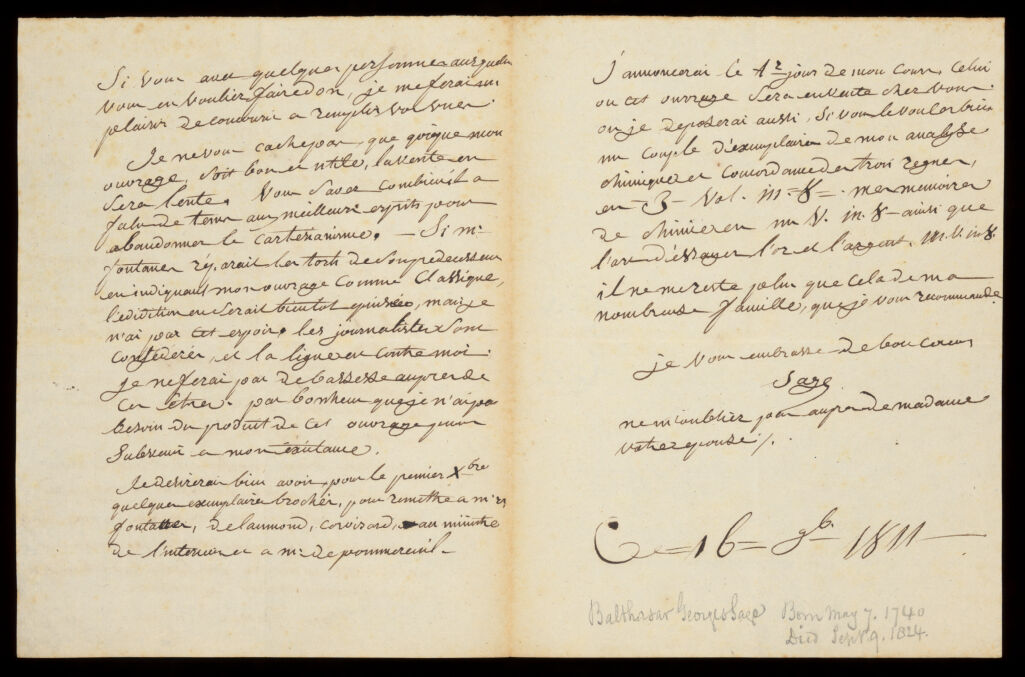 Si vous avez quelques personnes auxquelles
vous en vouliez faire don, je me ferai un
plaisir de concourir a remplir vos vues.
Je ne vous cache pas, que quoique mon
ouvrage, soit bon et utile, la vente en
sera lente. Vous savez combien il a
fallu de tems aux meilleurs esprits pour
abandonner le cartesianisme. — Si mr
fontanes réparait les torts de son predecesseur
en indiquant mon ouvrage comme Classique,
l'edition en serait bientot epuisée, mais je
n'ai pas cet espoir, les journalistes sont
confederés, et la ligue en contre moi.
je ne ferai pas de bassesse aupres de
ces etres. par bonheur que je n'ai pas
besoin du produit de cet ouvrage pour
subvenir a mon existance.
Je desirerai bien avoir, pour le premier Xbre
quelques exemplaires brochés, pour remettre a mrs
fontanes, de laumond, corvizard, au ministre
de l'interieur et a mr. de pommereuil —
J'annoncerai le 1r jour de mon cours, celui
ou cet ouvrage sera en vente chez vous.
ou je deposerai aussi, si vous le voulez bien
un couple d'exemplaires de mon analyse
chimique et concordance des trois regnes,
en = 3 — Vol. in = 8 — mes memoires
de chimie en un V. in. 8 — ainsi que
l'art d'essayer l'or et l'argent. un V. in 8.
il ne me reste plus que cela de ma
nombreuse famille, que je vous recommande
je vous embrasse de bon coeur
Sage
ne m'oubliez pas aupres de madame
votre epouse /.
Ce = 16 = 9b. 1811 —
Balthasar Georges Sage Born May 7. 1740
Died Sept 9. 1824.